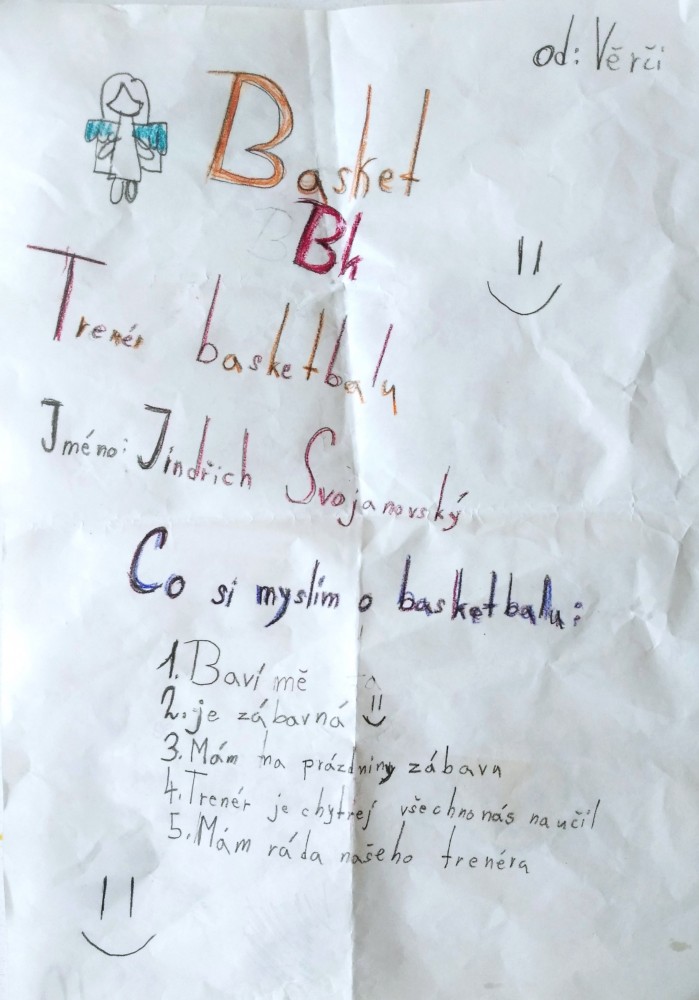 od: Věrči
Basket
Bk
Trenér basketbalu
Jméno: Jindřich Svojanovský
Co si myslím o basketbalu:
1. Baví mě
2. je zábavná
3. Mám na prázdniny zábavu
4. Trenér je chytřej všechno nás naučil
5. Mám ráda našeho trenéra